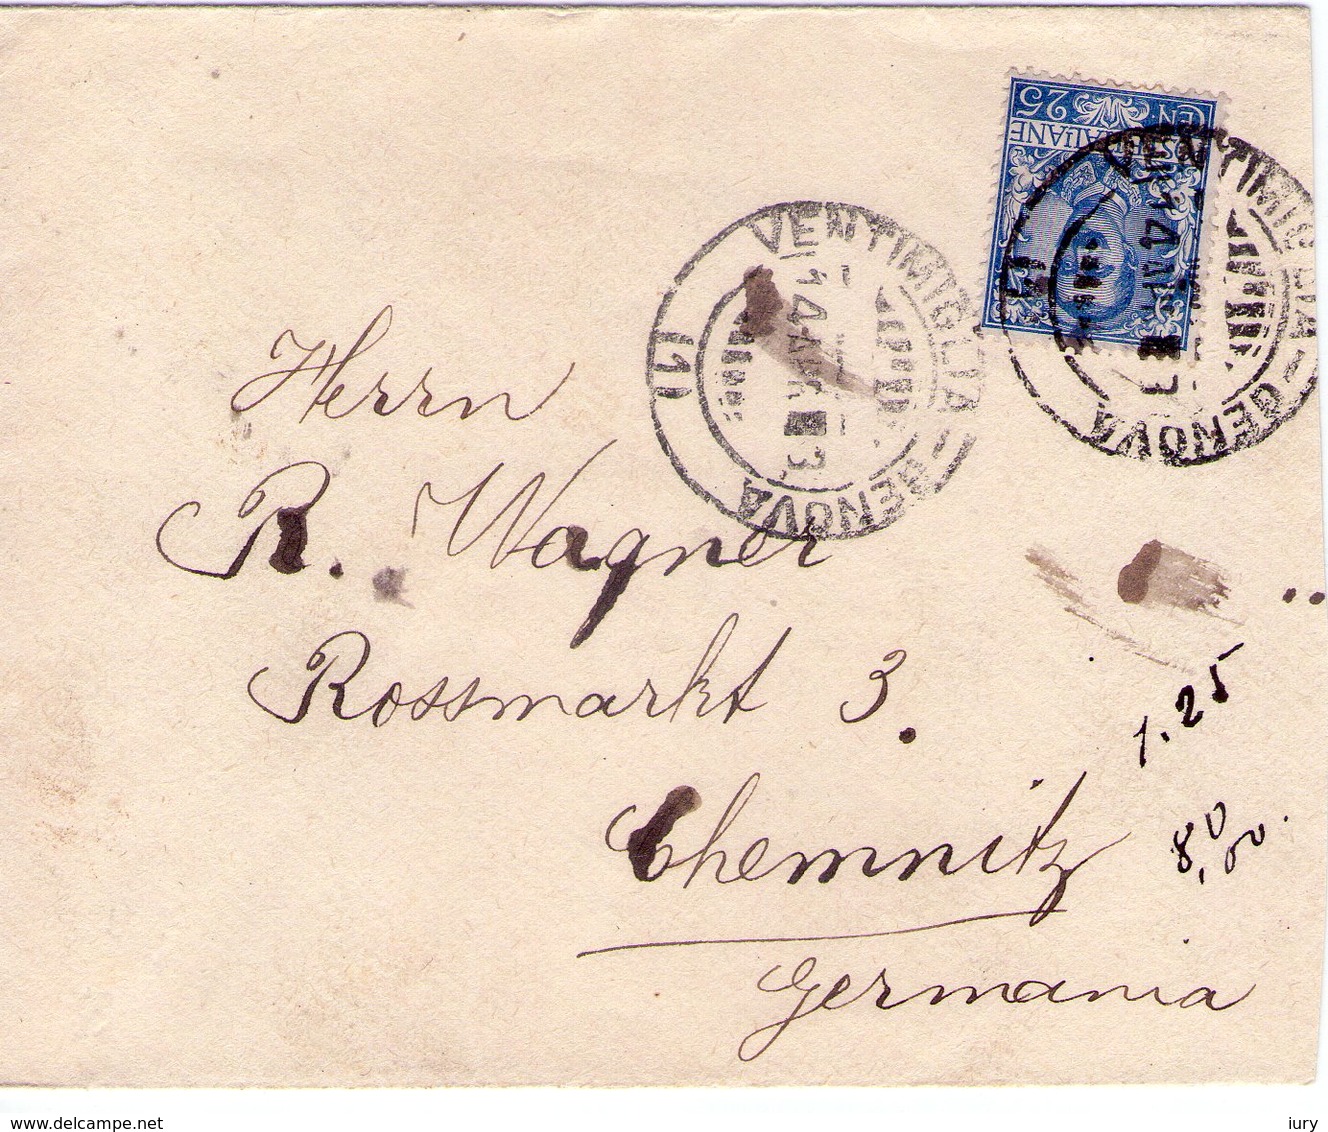 CEN 25
POSTE ITALIANE
VENTIMIGLIA - GENOVA
(1)
14 APR 3
VENTIMIGLIA - GENOVA
14 APR 3
Herrn
R. Wagner
Rossmarkt 3.
Chemnitz
Germania
1.25
8,00
www.delcampe.net
iury